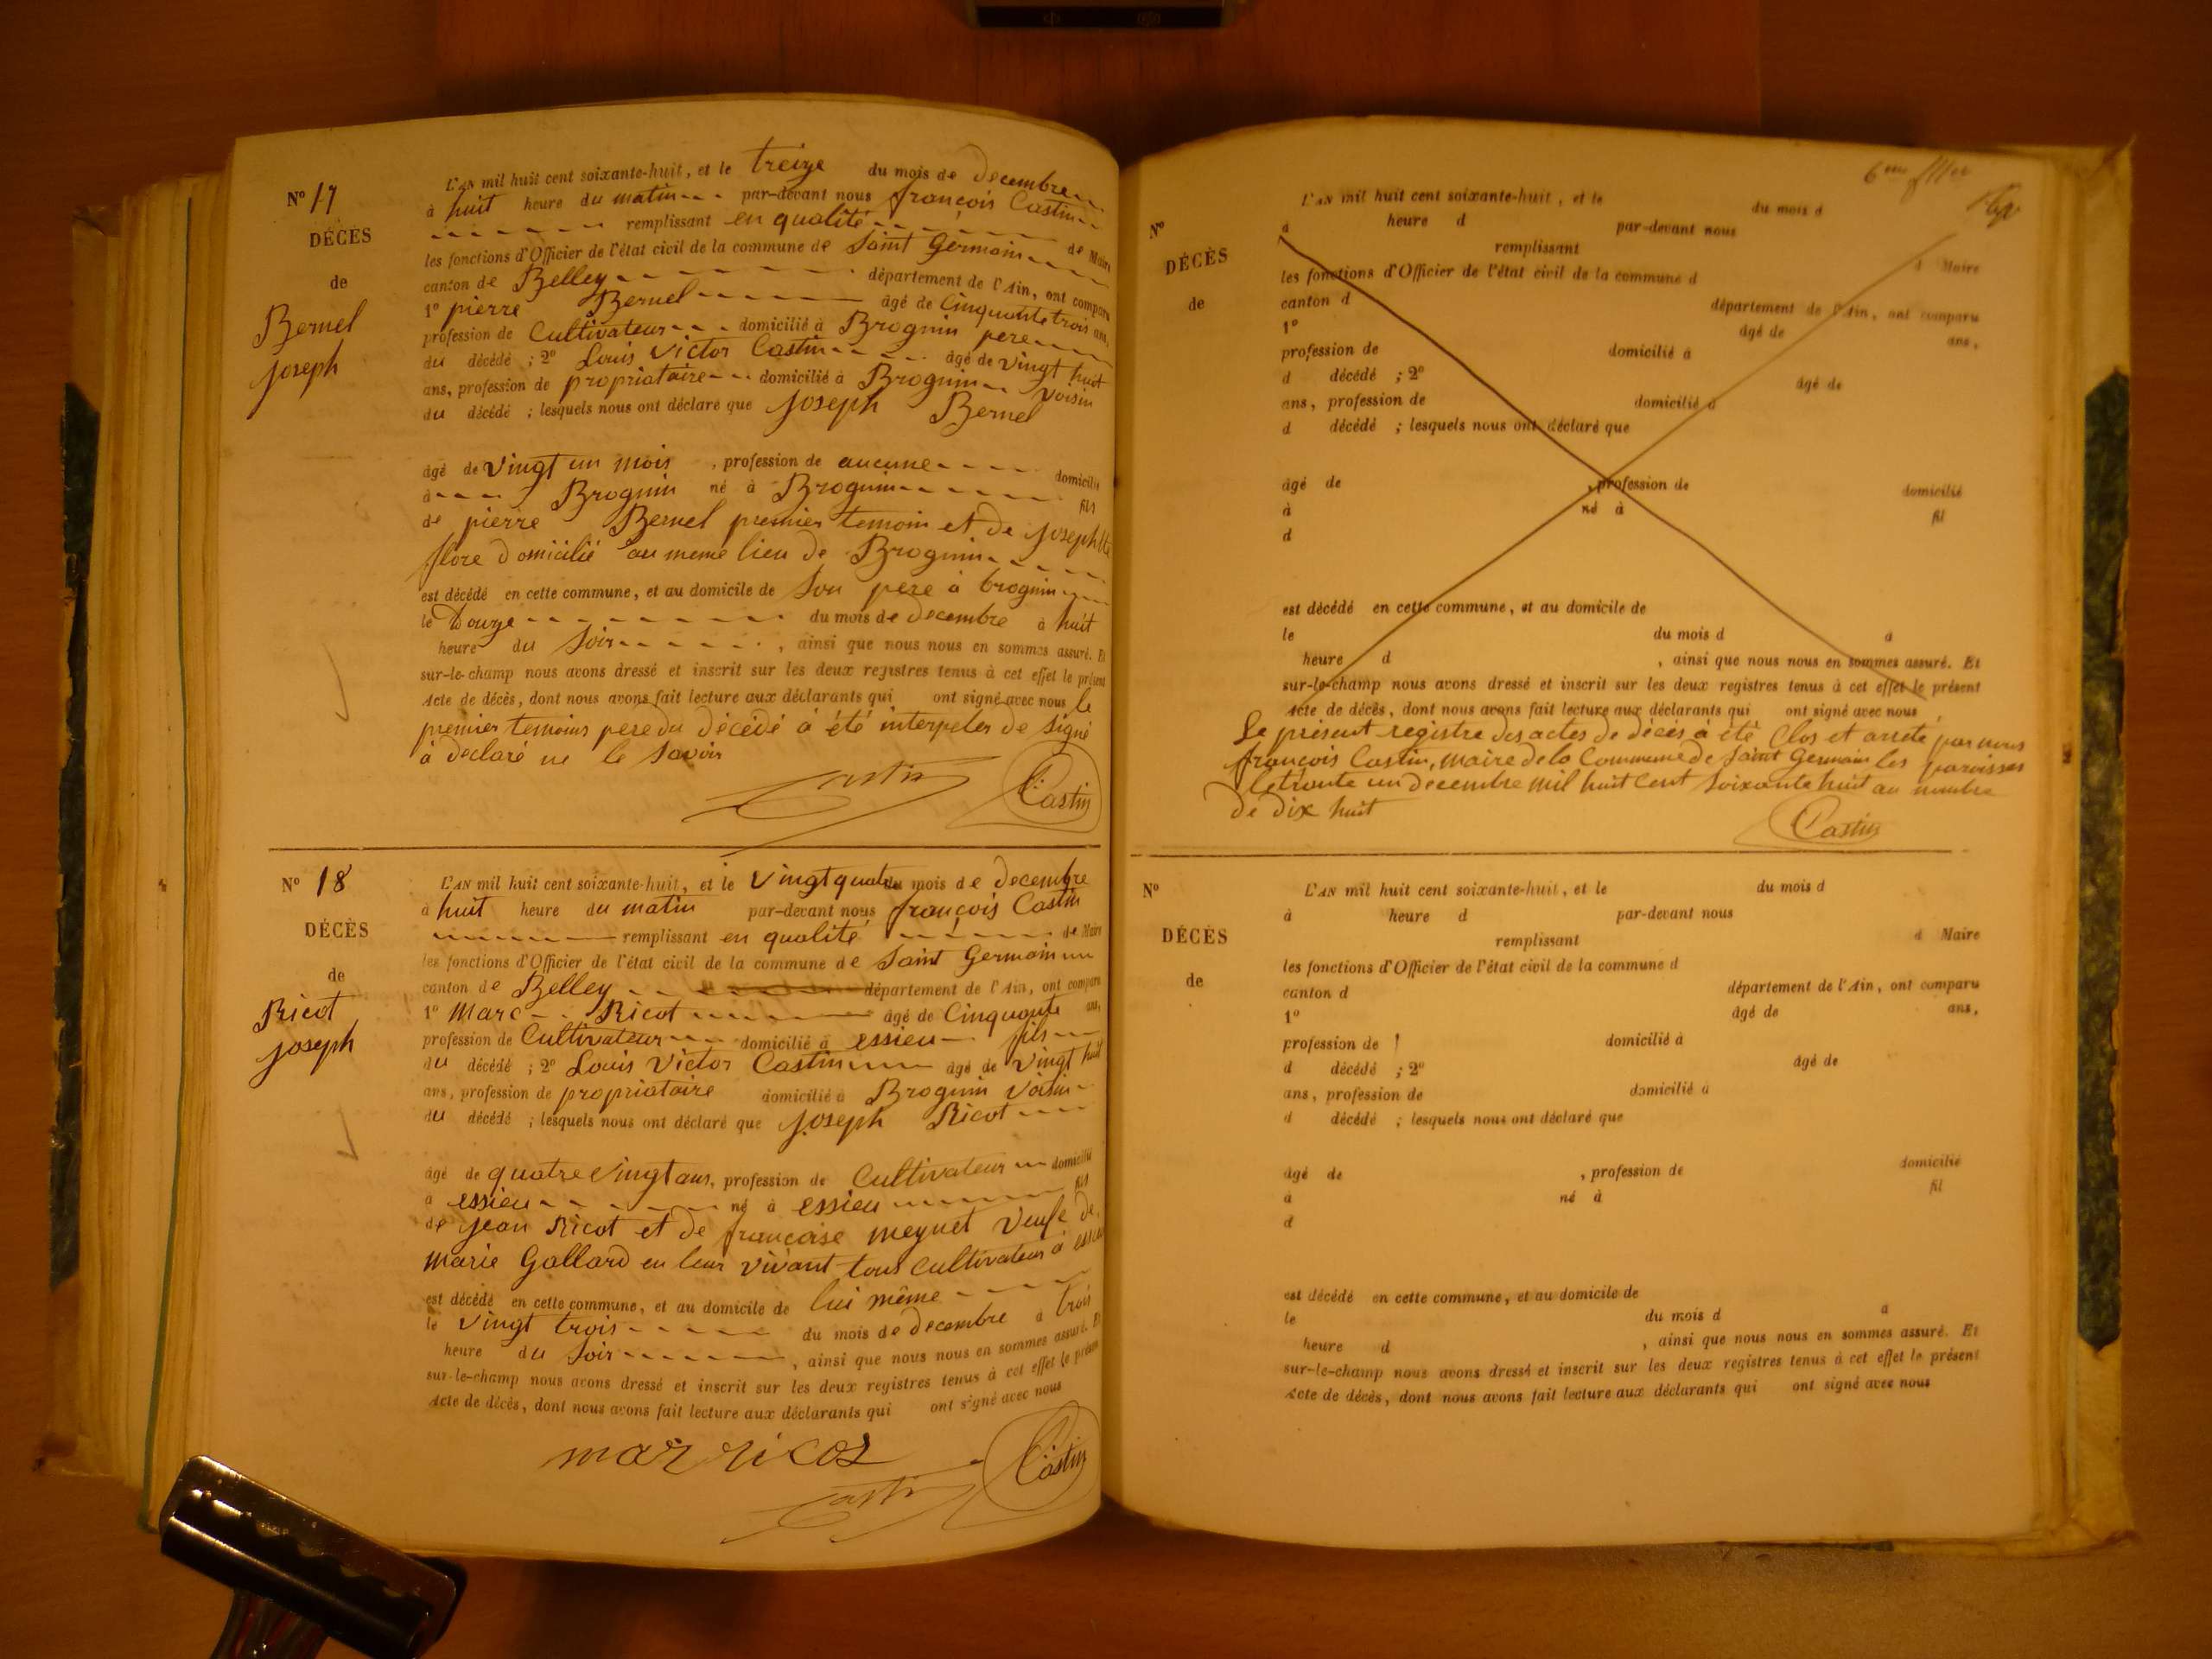 Nº 17
DÉCÈS
de
Bernel
joseph
L'AN mil huit cent soixante-huit, et le treize du mois de decembre
à huit heure du matin par-devant nous françois Castin
remplissant en qualité de Maire
les fonctions d'Officier de l'état civil de la commune de Saint Germain
canton de Belley département de l'Ain, ont comparu
1º pierre Bernel âgé de Cinquante trois ans,
profession de Cultivateur domicilié à Brognin pere
du décédé ; 2º Louis Victor Castin âgé de vingt huit
ans, profession de propriataire domicilié à Brognin voisin
du décédé ; lesquels nous ont déclaré que joseph Bernel
âgé de vingt un mois , profession de aucune domicilié
à Brognin né à Brognin fils
de pierre Bernel premier temoin et de josephtte
flore domicilié au meme lieu de Brognin
est décédé en cette commune, et au domicile de son pere à brognin
le Douze du mois de decembre à huit
heure du soir , ainsi que nous nous en sommes assuré. Et
sur-le-champ nous avons dressé et inscrit sur les deux registres tenus à cet effet le présent
Acte de décès, dont nous avons fait lecture aux déclarants qui ont signé avec nous le
premier temoins pere du décédé à été interpeler de signé
à declaré ne le savoir
Castin Castin
Nº 18
DÉCÈS
de
Ricot
joseph
L'AN mil huit cent soixante-huit, et le vingt quatre du mois de decembre
à huit heure du matin par-devant nous françois Castin
remplissant en qualité de Maire
les fonctions d'Officier de l'état civil de la commune de Saint Germain
canton de Belley département de l'Ain, ont comparu
1º Marc Ricot âgé de Cinquante ans,
profession de Cultivateur domicilié à essieu fils
du décédé ; 2º Louis Victor Castin âgé de vingt huit
ans, profession de propriataire domicilié à Brognin voisin
du décédé ; lesquels nous ont déclaré que joseph Ricot
âgé de quatre vingt ans, profession de Cultivateur domicilié
à essieu né à essieu fils
de jean Ricot et de françoise meynet veufe de
marie Gallard en leur vivant tous cultivateur à essieu
est décédé en cette commune, et au domicile de lui même
le vingt trois du mois de decembre à trois
heure du soir , ainsi que nous nous en sommes assuré. Et
sur-le-champ nous avons dressé et inscrit sur les deux registres tenus à cet effet le présent
Acte de décès, dont nous avons fait lecture aux déclarants qui ont signé avec nous
mar ricot
Castin Castin
6eme
Nº
DÉCÈS
de
L'AN mil huit cent soixante-huit, et le du mois d
à heure d par-devant nous
remplissant d Maire
les fonctions d'Officier de l'état civil de la commune d
canton d département de l'Ain, ont comparu
1º âgé de ans,
profession de domicilié à
d décédé ; 2º âgé de
ans, profession de domicilié à
d décédé ; lesquels nous ont déclaré que
âgé de , profession de domicilié
à né à fil
d
est décédé en cette commune, et au domicile de
le du mois d à
heure d , ainsi que nous nous en sommes assuré. Et
sur-le-champ nous avons dressé et inscrit sur les deux registres tenus à cet effet le présent
Acte de décès, dont nous avons fait lecture aux déclarants qui ont signé avec nous
Le présent registre des actes de décès à été Clos et arreté par nous
françois Castin, maire de la Commune de Saint Germain les paroisses
le trante un decembre mil huit Cent Soixante huit au nombre
de dix huit
Castin
Nº
DÉCÈS
de
L'AN mil huit cent soixante-huit, et le du mois d
à heure d par-devant nous
remplissant d Maire
les fonctions d'Officier de l'état civil de la commune d
canton d département de l'Ain, ont comparu
1º âgé de ans,
profession de domicilié à
d décédé ; 2º âgé de
ans, profession de domicilié à
d décédé ; lesquels nous ont déclaré que
âgé de , profession de domicilié
à né à fil
d
est décédé en cette commune, et au domicile de
le du mois d à
heure d , ainsi que nous nous en sommes assuré. Et
sur-le-champ nous avons dressé et inscrit sur les deux registres tenus à cet effet le présent
Acte de décès, dont nous avons fait lecture aux déclarants qui ont signé avec nous